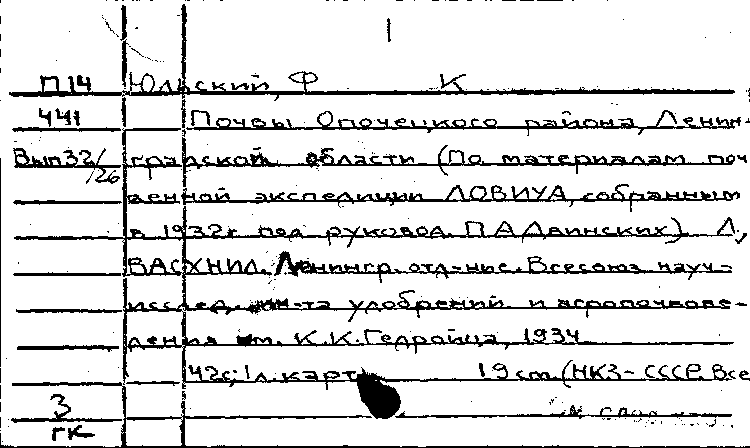 П14 Юльский, Ф К
441 Почвы Опочецкого района, Ленин-
Вып 32/26 градской области (По материалам поч
венной экспедиции ЛОВИУА, собранным
в 1932г под руковод. П.А.Двинских). Л,
ВАСХНИЛ. Ленингр. отд-ние. Всесоюз науч-
исслед. ин-та удобрений и агропочвове-
дения им. К.К.Гедройца, 1934
42с; 1л. карт 19 см (НКЗ-СССР. Все
3
ГК